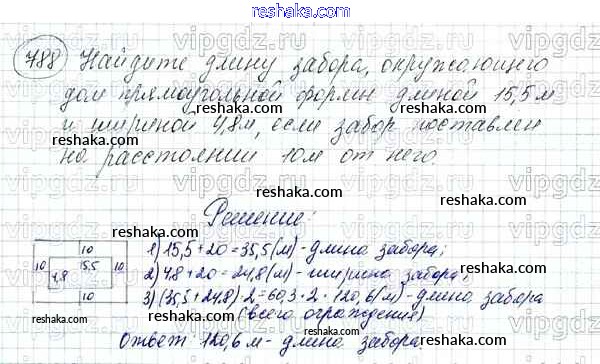 reshaka.com
788 Найдите длину забора, окружающего
дом прямоугольной формы длиной 15,5 м
и шириной 4,8 м, если забор поставлен
на расстоянии 10 м от него.
reshaka.com reshaka.com
Решение:
10
10 4,8 15,5 10
10
1) 15,5 + 20 = 35,5 (м) - длина забора;
2) 4,8 + 20 = 24,8 (м) - ширина забора;
3) (35,5 + 24,8) · 2 = 60,3 · 2 = 120,6 (м) - длина забора
(всего ограждения)
Ответ 120,6 м - длина забора.
reshaka.com
reshaka.com
reshaka.com
reshaka.com
reshaka.com
reshaka.com